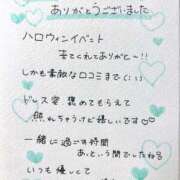 ありがとうございました
ハロウィンイベント
来てくれてありがと〜!!
しかも素敵な口コミまで(; ;)
ドレス姿 褒めてもらえて
照れちゃうけど嬉しいです♡♡
一緒に過ごす時間
あっという間でしたねる
いつも優しくて